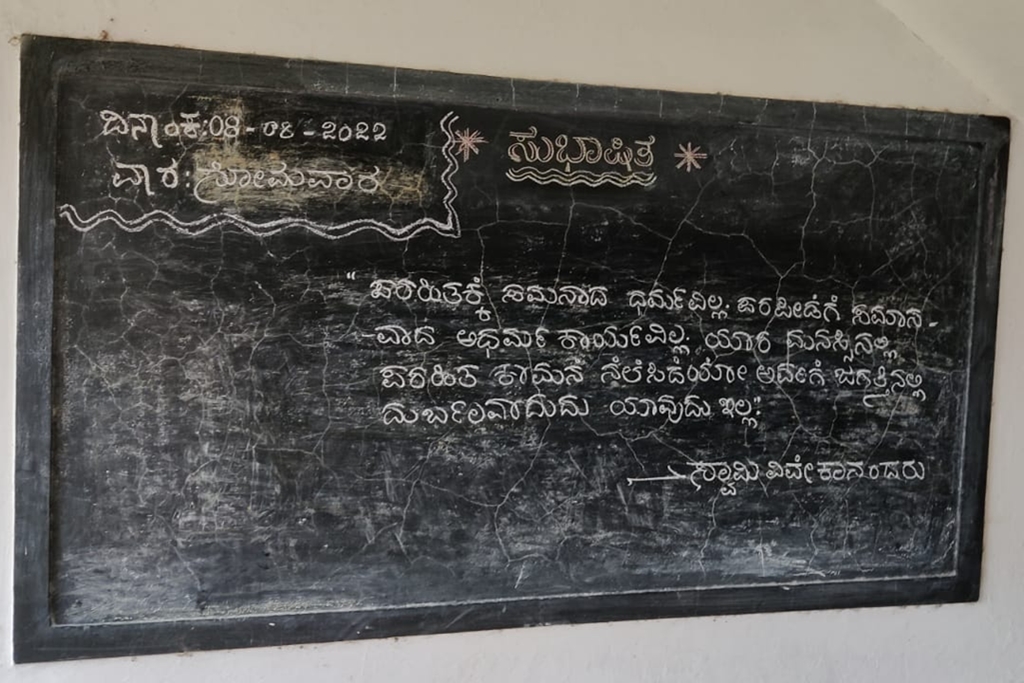 ದಿನಾಂಕ:08-08-2022
ವಾರ: ಸೋಮವಾರ
ಸುಭಾಷಿತ
"ಪರಹಿತಕ್ಕೆ ಸಮನಾದ ಧರ್ಮವಿಲ್ಲ. ಪರಪೀಡೆಗೆ ಸಮಾನ-
ವಾದ ಅಧರ್ಮ ಕಾರ್ಯವಿಲ್ಲ. ಯಾರ ಮನಸ್ಸಿನಲ್ಲಿ
ಪರಹಿತ ಕಾಮನೆ ನೆಲೆಸಿದೆಯೋ ಅವರಿಗೆ ಜಗತ್ತಿನಲ್ಲಿ
ದುರ್ಬಲವಾದುದು ಯಾವುದು ಇಲ್ಲ."
ಸ್ವಾಮಿ ವಿವೇಕಾನಂದರು